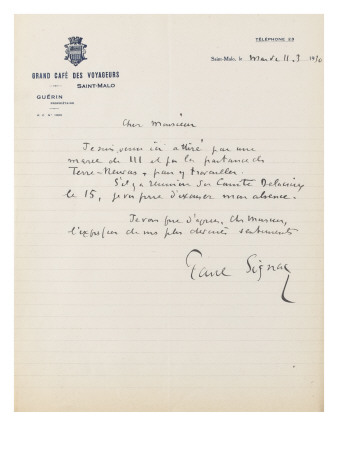 TÉLÉPHONE 23
GRAND CAFÉ DES VOYAGEURS
SAINT-MALO
GUÉRIN
PROPRIÉTAIRE
Saint-Malo, le Mardi 11.3 1930
Cher Monsieur
Je suis venu ici attiré par une
marée de 111 et par la partance des
Terre-Neuvas, pour y travailler.
S'il y a réunion du Comité Delacroix
le 15, je vous prie d'excuser mon absence.
Je vous prie d'agréer, cher Monsieur,
l'expression de mes plus dévoués sentiments
Paul Signac